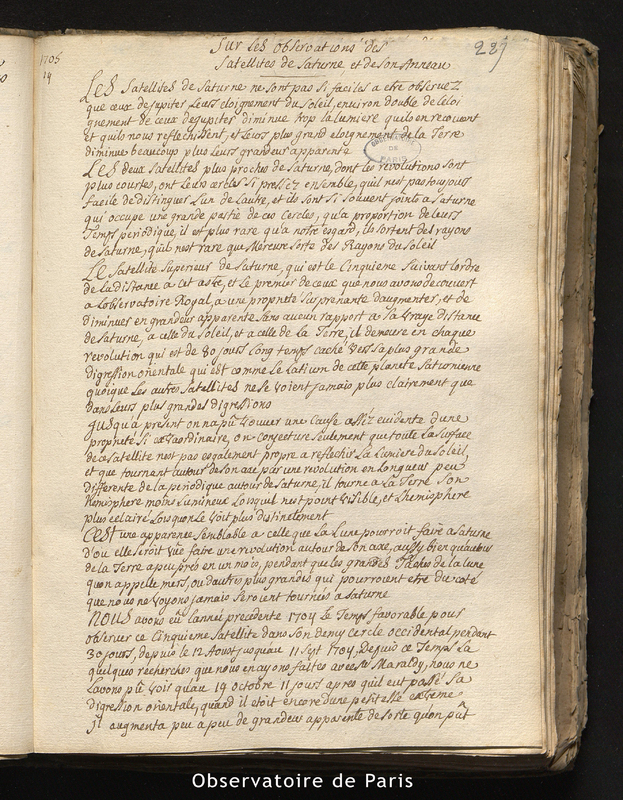 Sur Les observations des
Satellites de Saturne et de son Anneau
287
1705
19
Les Satellites de Saturne ne sont pas si faciles a etre observez
que ceux de jupiter Leurs eloignement du Soleil, environ double de leloi
gnement de ceux de jupiter diminue trop la lumiere quils en recoivent
et quils nous reflechissent, et Leurs plus grand eloignement de la Terre
diminue beaucoup plus Leurs grandeur apparente
OBSERVATOIRE
DE
PARIS
Les deux Satellites plus proches de Saturne, dont les revolutions sont
plus courtes, ont Leurs cercles si pressez ensemble, quil nest pas toujours
facile de distinguer Lun de Lautre, et ils sont si souvent joints a Saturne
qui occupe une grande partie de ces Cercles, qu'a proportion de leurs
Temps periodique, il est plus rare qu'a notre esgard, ils sortent des rayons
de Saturne, quil nest rare que Mercure sorte des Rayons du Soleil
Le Satellite Superieur de Saturne, qui est le Cinquieme Suivant lordre
de la distance a cet astre, et le premier de ceux que nous avons decouvert
a Lobservatoire Royal, a une propriete surprenante daugmenter, et de
diminuer en grandeur apparente sans aucun rapport a sa vraye distance
de Saturne, a celle du Soleil, et a celle de la Terre, il demeure en chaque
revolution qui est de 80 jours Long temps caché vers sa plus grande
digression orientale qui est comme le Latium de cette planete Saturnienne
quoique Les autres Satellites ne se voient jamais plus clairement que
dans Leurs plus grandes digressions
jusqu'à present on na pû trouver une Cause assez evidente dune
propriete si extraordinaire, on conjecture seulement que toute La surface
de ce satellite nest pas egalement propre a reflechir La Lumiere du soleil,
et que tournant autour de son axe par une revolution en Longueur peu
differente de la periodique autour de Saturne, il tourne a La Terre son
Hemisphere moins Lumineux Lorsquil nest point visible, et Lhemisphere
plus eclairé Lorsquon Le voit plus distinctement
Cest une apparence semblable a celle que La Lune pourroit faire a Saturne
d'ou elle seroit vûe faire une revolution autour de son axe, aussy bien quautour
de la Terre a peu prés en un mois, pendant que les grandes Taches de la lune
quon appelle mers, ou dautres plus grandes qui pourroient etre du coté
que nous ne voyons jamais seroient tournées a Saturne
Nous avons eû Lanneé precedente 1704 Le Temps favorable pour
observer ce Cinquieme Satellite dans son demy cercle occidental pendant
30 jours, depuis le 12 Aoust jusqu'au 11 Sept 1704, Depuis ce Temps La
quelques recherches que nous en ayons faites avec Mr Maraldy, nous ne
Lavons pû voir qu'au 19 octobre 11 jours apres quil eut passé sa
digression orientale, quand il etoit encore dune petitesse extreme
jl augmenta peu a peu de grandeur apparente de sorte quon pût
Observatoire de Paris